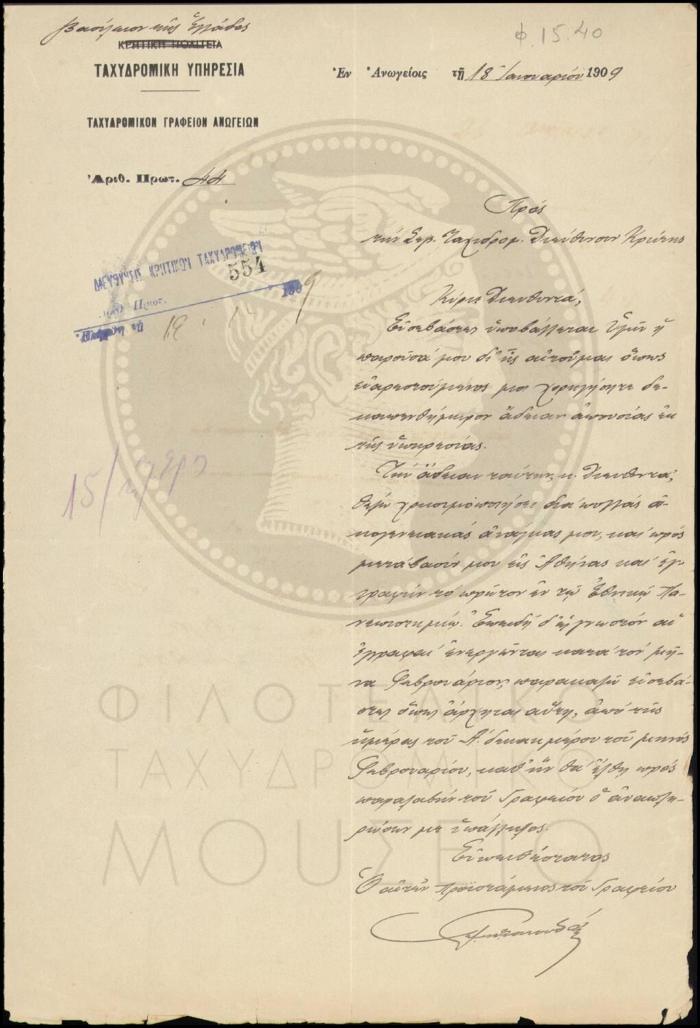 Βασίλειον τῆς Ἑλλάδος
φ. 15.40
ΚΡΗΤΙΚΗ ΠΟΛΙΤΕΙΑ
ΤΑΧΥΔΡΟΜΙΚΗ ΥΠΗΡΕΣΙΑ
Ἐν Ἀνωγείοις τῇ 18 Ἰανουαρίου 1909
ΤΑΧΥΔΡΟΜΙΚΟΝ ΓΡΑΦΕΙΟΝ ΑΝΩΓΕΙΩΝ
Ἀριθ. Πρωτ. 44
Πρὸς
τὴν Σεβ. Ταχυδρομ. Διεύθυνσιν Κρήτης
ΔΙΕΥΘΥΝΣΙΣ ΚΡΗΤΙΚΟΥ ΤΑΧΥΔΡΟΜΕΙΟΥ
554
1909
Κύριε Διευθυντά,
Εὐσεβάστως ὑποβάλλεται Ὑμῖν ἡ
παροῦσά μου δι' ἧς αἰτοῦμαι ὅπως
εὐαρεστούμενος μοι χορηγήσητε δε-
καπενθήμερον ἄδειαν ἀπουσίας ἐκ
τῆς ὑπηρεσίας.
Τὴν ἄδειαν ταύτην, κ. Διευθυντά,
θέλω χρησιμοποιήσει διὰ πολλὰς οἰ-
κογενειακὰς ἀνάγκας μου, καὶ πρὸς
μετάβασίν μου εἰς Ἀθήνας καὶ ἐγ-
γραφὴν τὸ πρῶτον ἐν τῷ Ἐθνικῷ Πα-
νεπιστημίῳ. Ἐπειδὴ δ' ὡς γνωστὸν αἱ
ἐγγραφαὶ ἐνεργοῦνται κατὰ τὸν μῆ-
να Φεβρουάριον, παρακαλῶ εὐσεβά-
στως ὅπως ἄρχηται αὕτη, ἀπὸ τῆς
ἡμέρας τοῦ Α' δεκαημέρου τοῦ μηνὸς
Φεβρουαρίου, καθ' ἣν θὰ ἔλθῃ πρὸς
παραλαβὴν τοῦ Γραφείου ὁ ἀναπλη-
ρώσων με ὑπάλληλος.
Εὐπειθέστατος
Ὁ αὐτὸς προϊστάμενος τοῦ Γραφείου
ΦΙΛΟΤΕΛΙΚΟ
ΤΑΧΥΔΡΟΜΙΚΟ
ΜΟΥΣΕΙΟ